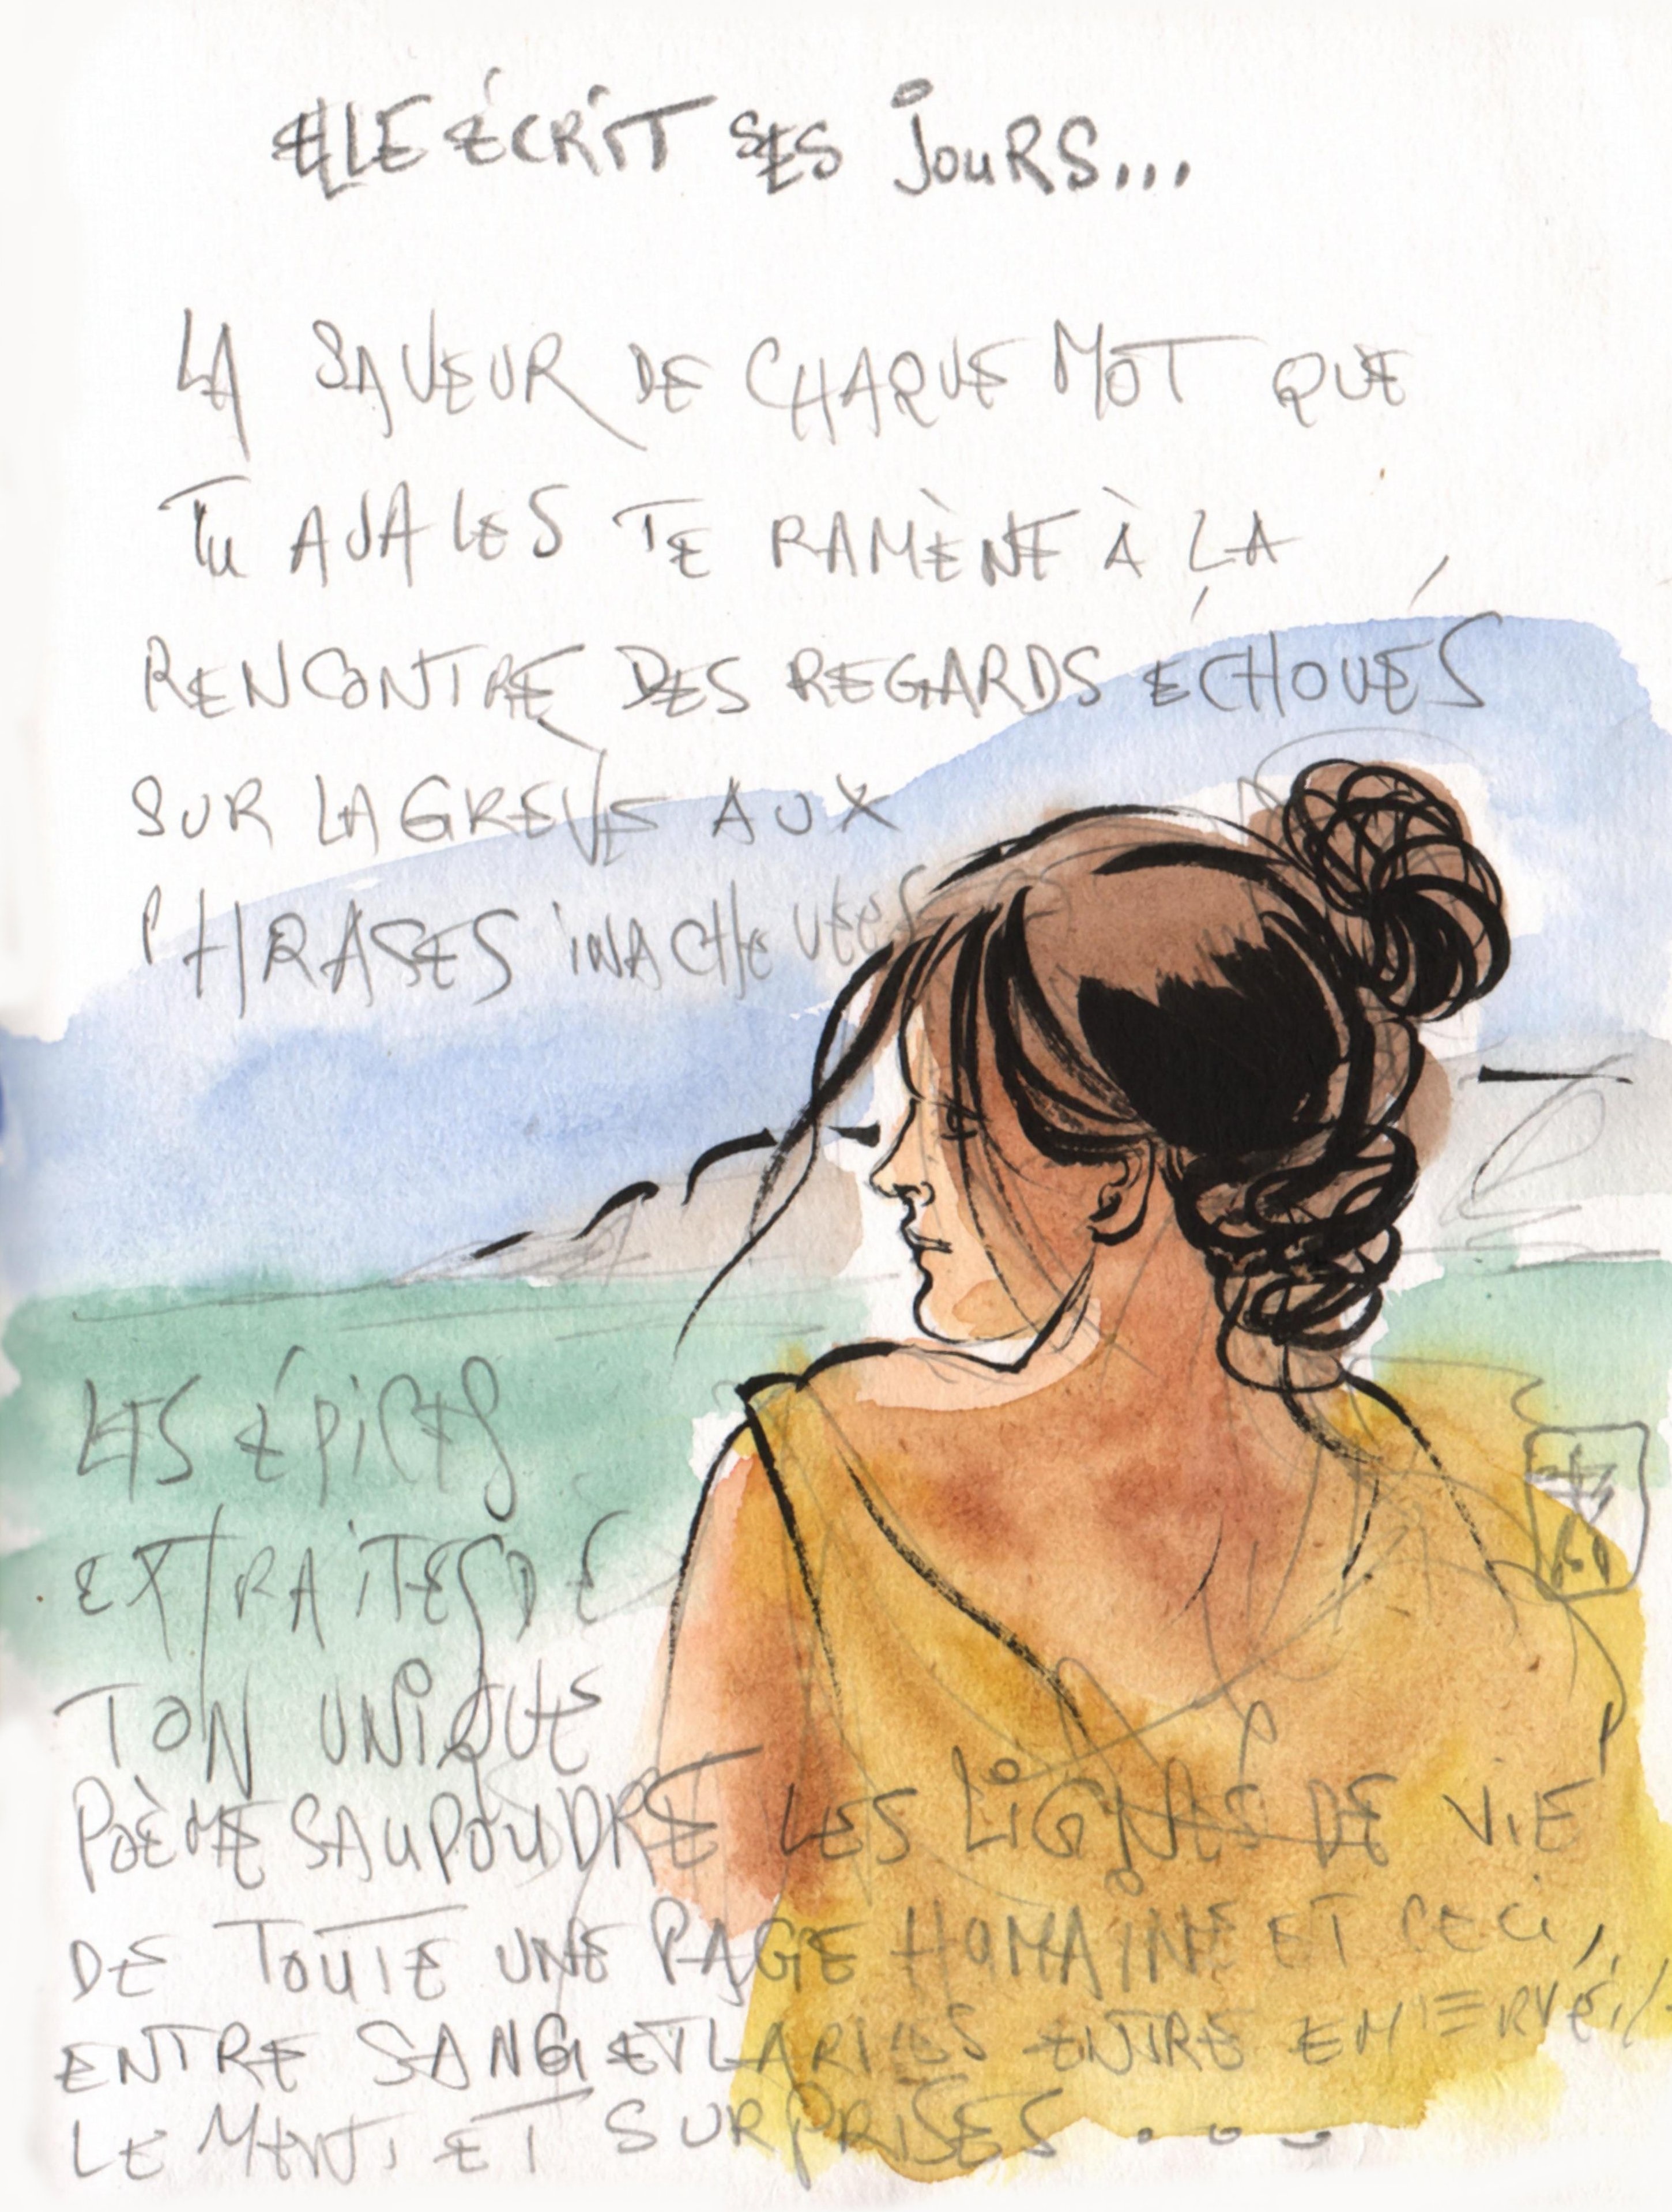 ELLE ÉCRIT SES JOURS...
LA SAVEUR DE CHAQUE MOT QUE
TU AVALES TE RAMÈNE À LA
RENCONTRE DES REGARDS ÉCHOUÉS
SUR LA GRÈVE AUX
PHRASES INACHEVÉES
LES ÉPICES
EXTRAITES DE
TON UNIQUE
POÈME SAUPOUDRE LES LIGNES DE VIE
DE TOUTE UNE PAGE HUMAINE ET CECI,
ENTRE SANG ET LARMES ENTRE EMERVEIL-
LEMENT ET SURPRISES ....